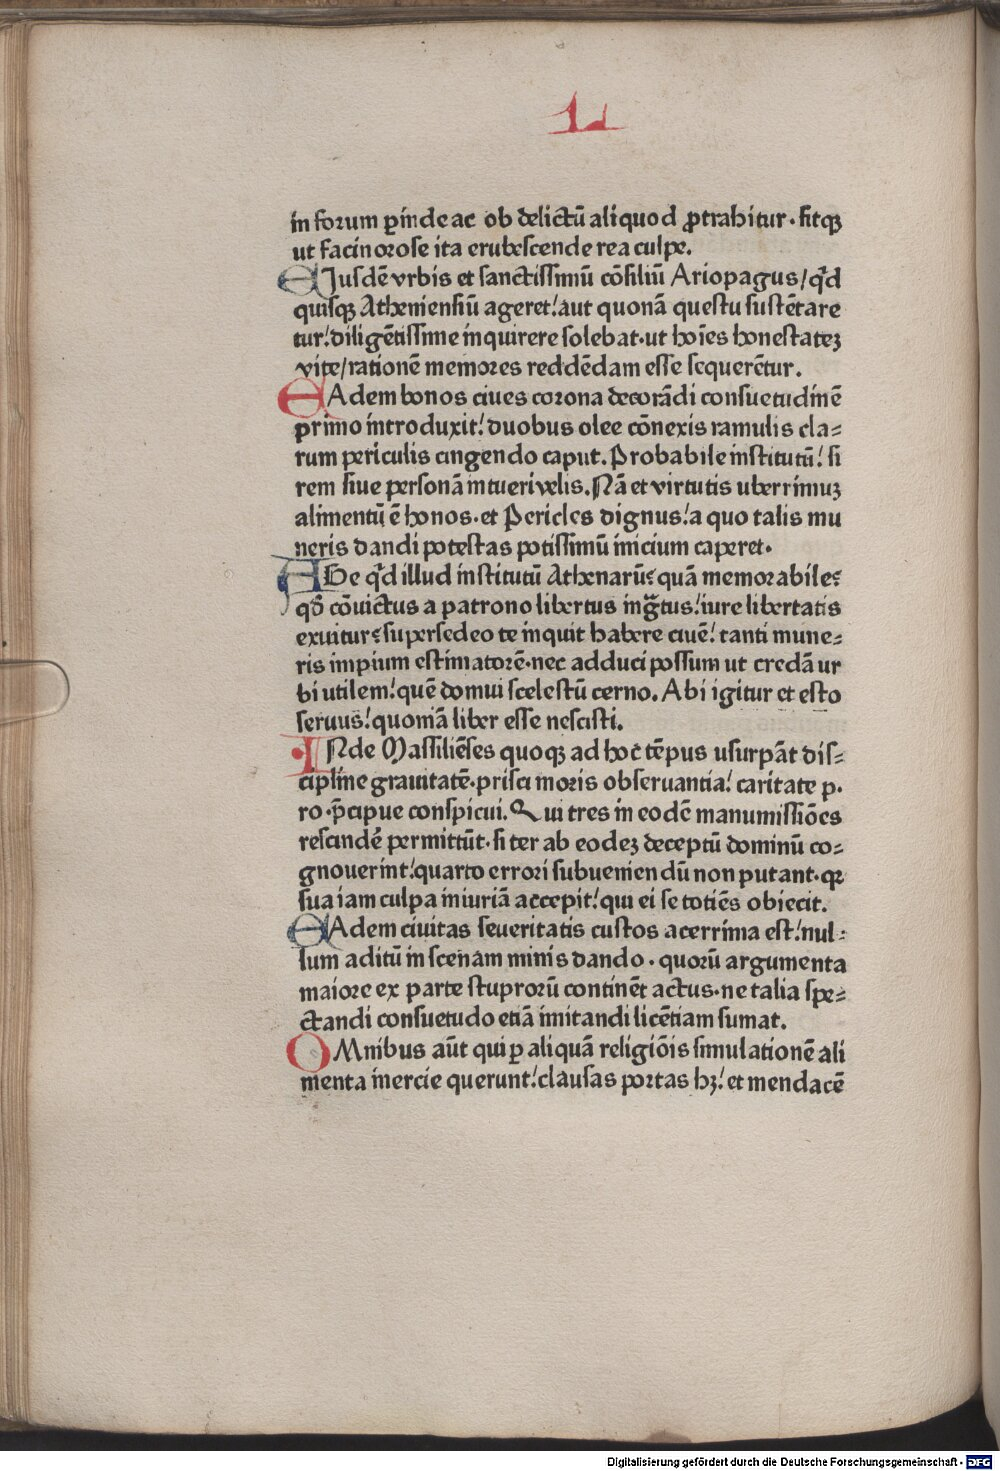 L
in forum ꝑinde ac ob delictū aliquod ꝓtrahitur · fitqꝫ
ut facinorose ita erubescende rea culpe.
EJusdē vrbis et sanctissimū cōsiliū Ariopagus / qͥd
quisqꝫ Atheniensiū ageret! aut quonā questu sustētare
tur! diligētissime inquirere solebat · ut hoīes honestateꝫ
vite / rationē memores reddēdam esse sequerētur.
EAdem bonos ciues corona decorādi consuetudinē
primo introduxit! duobus olee cōnexis ramulis cla⸗
rum periculis cingendo caput. Probabile institutū! si
rem siue personā intueri velis. Nā et virtutis uberrimuꝫ
alimentū ē honos · et Pericles dignus! a quo talis mu
neris dandi potestas potissimū inicium caperet.
AGe qͥd illud institutū Athenarū⸵ quā memorabile⸵
qd̄ cōuictus a patrono libertus ingͣtus! iure libertatis
exuitur⸵ supersedeo te inquit habere ciuē! tanti mune⸗
ris impium estimatorē · nec adduci possum ut credā ur
bi utilem! quē domui scelestū cerno. Abi igitur et esto
seruus! quoniā liber esse nescisti.
INde Massiliēses quoqꝫ ad hoc tēpus usurpāt dis⸗
cipline grauitatē · prisci moris obseruantia! caritate p.
ro · p̄cipue conspicui. Qui tres in eodē manumissiōes
rescindē permittūt · si ter ab eodeꝫ deceptū dominū co⸗
gnouerint! quarto errori subueniendū non putant · qꝛ
sua iam culpa iniuriā accepit! qui ei se totiēs obiecit.
EAdem ciuitas seueritatis custos acerrima est! nul⸗
lum aditū in scenam mimis dando · quorū argumenta
maiore ex parte stuprorū continēt actus · ne talia spe⸗
ctandi consuetudo etiā imitandi licētiam sumat.
OMnibus aūt qui ꝑ aliquā religiōis simulationē ali
menta inercie querunt! clausas portas hꝫ! et mendacē
Digitalisierung gefördert durch die Deutsche Forschungsgemeinschaft - DFG